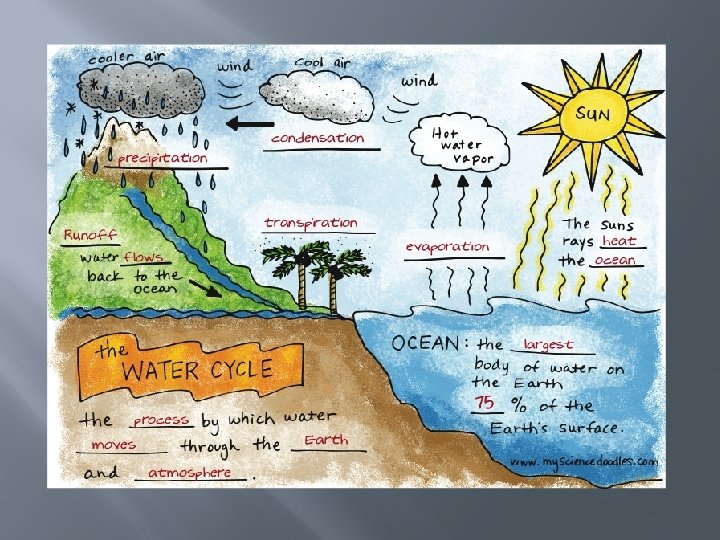 cooler air
wind
cool air
wind
SUN
condensation
Hot
water
vapor
precipitation
transpiration
Runoff
water flows
back to the
ocean
evaporation
The suns
rays heat
the ocean
the
WATER CYCLE
the process by which water
moves through the Earth
and atmosphere.
OCEAN: the largest
body of water on
the Earth
75 % of the
Earth's surface.
www.mysciencedoodles.com